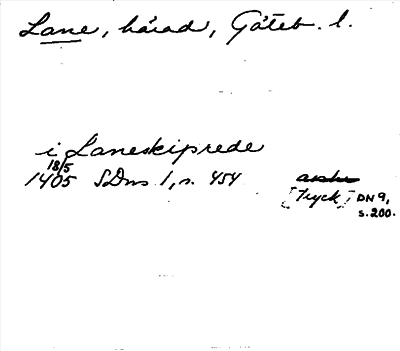 Lane, härad, Göteb. l.
i Laneskiprede
18/5
1405 SDns 1, n. 454
[Tryck] DN 9,
s. 200.